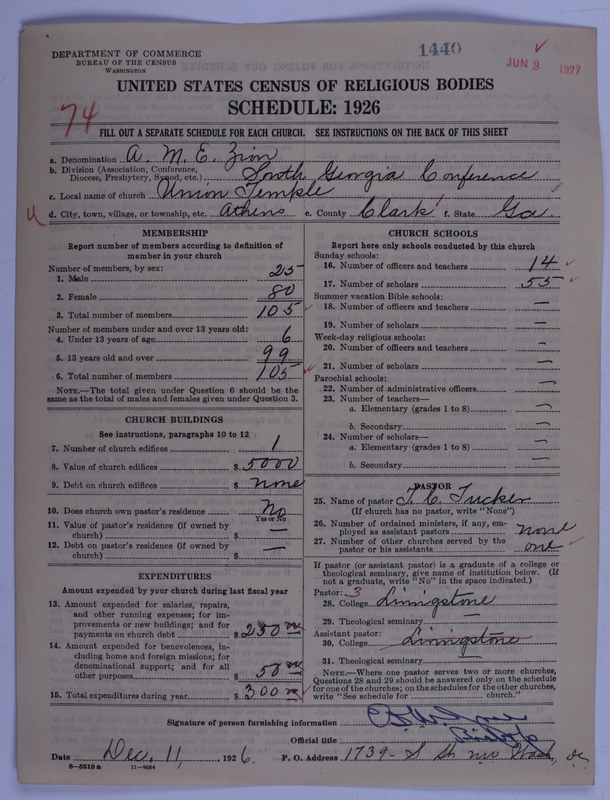 DEPARTMENT OF COMMERCE
BUREAU OF THE CENSUS
WASHINGTON
1440
JUN 3 1927
UNITED STATES CENSUS OF RELIGIOUS BODIES
SCHEDULE: 1926
74
FILL OUT A SEPARATE SCHEDULE FOR EACH CHURCH. SEE INSTRUCTIONS ON THE BACK OF THIS SHEET
a. Denomination A. M. E. Zion
b. Division (Association, Conference, Diocese, Presbytery, Synod, etc.) South Georgia Conference
c. Local name of church Union Temple
d. City, town, village, or township, etc. Athens e. County Clark f. State Ga
MEMBERSHIP
Report number of members according to definition of member in your church
Number of members, by sex:
1. Male 25
2. Female 80
3. Total number of members 105
Number of members under and over 13 years old:
4. Under 13 years of age 6
5. 13 years old and over 99
6. Total number of members 105
NOTE.—The total given under Question 6 should be the same as the total of males and females given under Question 3.
CHURCH BUILDINGS
See instructions, paragraphs 10 to 12
7. Number of church edifices 1
8. Value of church edifices $ 5000
9. Debt on church edifices $ none
10. Does church own pastor's residence No
Yes or No
11. Value of pastor's residence (if owned by church) $ —
12. Debt on pastor's residence (if owned by church) $ —
EXPENDITURES
Amount expended by your church during last fiscal year
13. Amount expended for salaries, repairs, and other running expenses; for improvements or new buildings; and for payments on church debt $ 250
14. Amount expended for benevolences, including home and foreign missions; for denominational support; and for all other purposes $ 50
15. Total expenditures during year $ 300
CHURCH SCHOOLS
Report here only schools conducted by this church
Sunday schools:
16. Number of officers and teachers 14
17. Number of scholars 55
Summer vacation Bible schools:
18. Number of officers and teachers —
19. Number of scholars —
Week-day religious schools:
20. Number of officers and teachers —
21. Number of scholars —
Parochial schools:
22. Number of administrative officers —
23. Number of teachers—
a. Elementary (grades 1 to 8) —
b. Secondary —
24. Number of scholars—
a. Elementary (grades 1 to 8) —
b. Secondary —
PASTOR
25. Name of pastor T. C. Tucker
(If church has no pastor, write "None")
26. Number of ordained ministers, if any, employed as assistant pastors none
27. Number of other churches served by the pastor or his assistants one
If pastor (or assistant pastor) is a graduate of a college or theological seminary, give name of institution below. (If not a graduate, write "No" in the space indicated.)
Pastor: 3
28. College Livingstone
29. Theological seminary
Assistant pastor:
30. College Livingstone
31. Theological seminary —
NOTE.—Where one pastor serves two or more churches, Questions 28 and 29 should be answered only on the schedule for one of the churches; on the schedules for the other churches, write "See schedule for church."
Signature of person furnishing information
Official title Bishop
Date Dec. 11, 1926. P. O. Address 1739- S St. NW Wash, DC
8—5518 a 11—9034